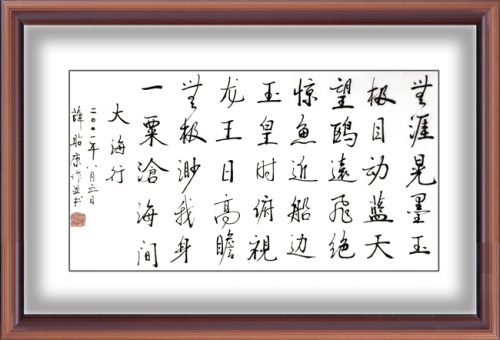 無涯晃墨玉
极目动蓝天
望鴎遠飛绝
惊魚近船边
玉皇时俯視
龙王日高瞻
無极渺我身
一粟滄海间
大海行
二〇〇一年八月五日
薛貽康作並书